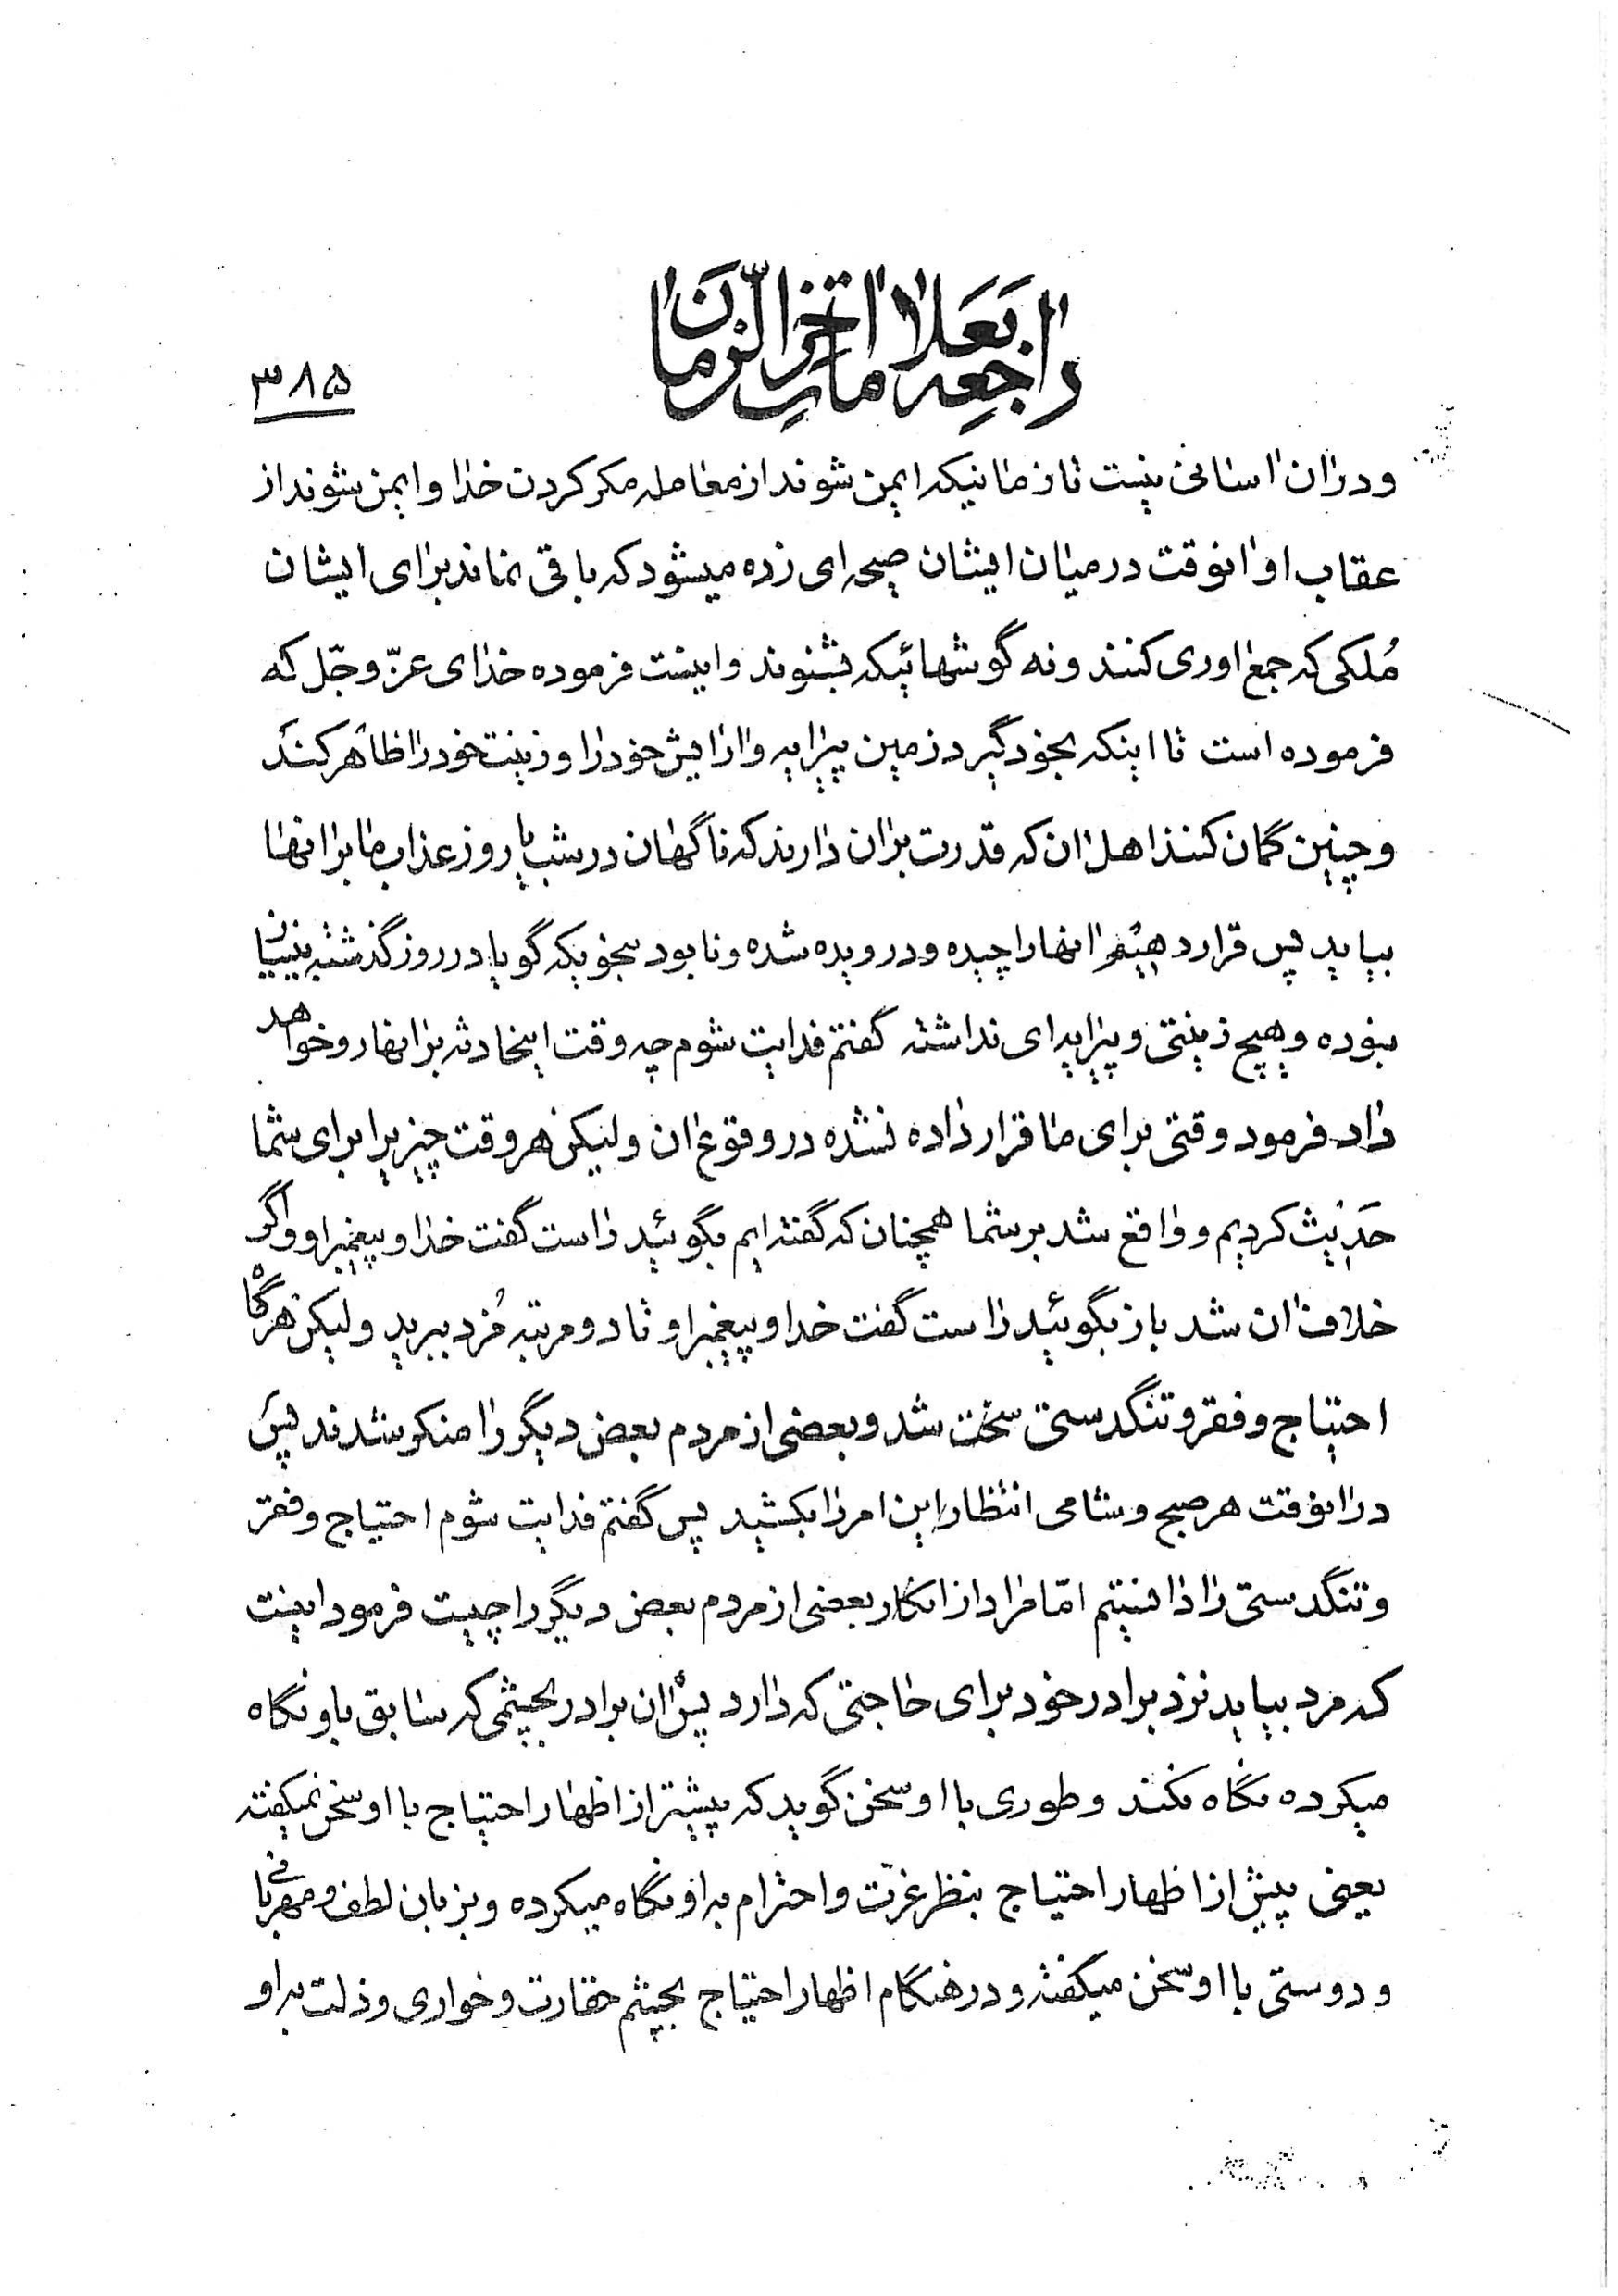 راجعه بعلامات اخر الزمان
۳۸۵
و در ان اسانی نیست تا زمانیکه ایمن شوند از معامله مکر کردن خدا و ایمن شوند از
عقاب او انوقت در میان ایشان صیحه ای زده میشود که باقی نماند برای ایشان
مُلکی که جمع اوری کنند و نه گوشهائیکه بشنوند و اینست فرموده خدای عزّ و جّل که
فرموده است تا اینکه بخود گیرد زمین پیرایه و ارایش خود را و زینت خود را ظاهر کند
و چنین گمان کنند اهل ان که قدرت بر ان دارند که ناگهان در شب یا روز عذاب ما بر انها
بیاید پس قرار دهیم انها را چیده و درویده شده و نابود بنحویکه گویا در روز گذشته بنیان
نبوده و هیچ زینتی و پیرایه ای نداشته گفتم فدایت شوم چه وقت اینحادثه بر انها رو خواهد
داد فرمود وقتی برای ما قرار داده نشده در وقوع ان ولیکن هر وقت چیزیرا برای شما
حَدیث کردیم و واقع شد بر شما همچنان که گفته ایم بگوئید راست گفت خدا و پیغمبر او و اگر
خلاف ان شد باز بگوئید راست گفت خدا و پیغمبر او تا دو مرتبه مُزد ببرید ولیکن هرگاه
احتیاج و فقر و تنگدستی سخت شد و بعضی از مردم بعض دیگر را منکر شدند پس
در انوقت هر صبح و شامی انتظار این امر را بکشید پس گفتم فدایت شوم احتیاج و فقر
و تنگدستی را دانستیم امّا مراد از انکار بعضی از مردم بعض دیگر را چیست فرمود اینست
که مرد بیاید نزد برادر خود برای حاجتی که دارد پس ان برادر بچشمی که سابق باو نگاه
میکرده نگاه نکند و طوری با او سخن گوید که پیشتر از اظهار احتیاج با او سخن نمیگفته
یعنی پیش از اظهار احتیاج بنظر عزّت و احترام به او نگاه میکرده و بزبان لطف و مهربانی
و دوستی با او سخن میگفته و در هنگام اظهار احتیاج بچشم حقارت و خواری و ذلت به او